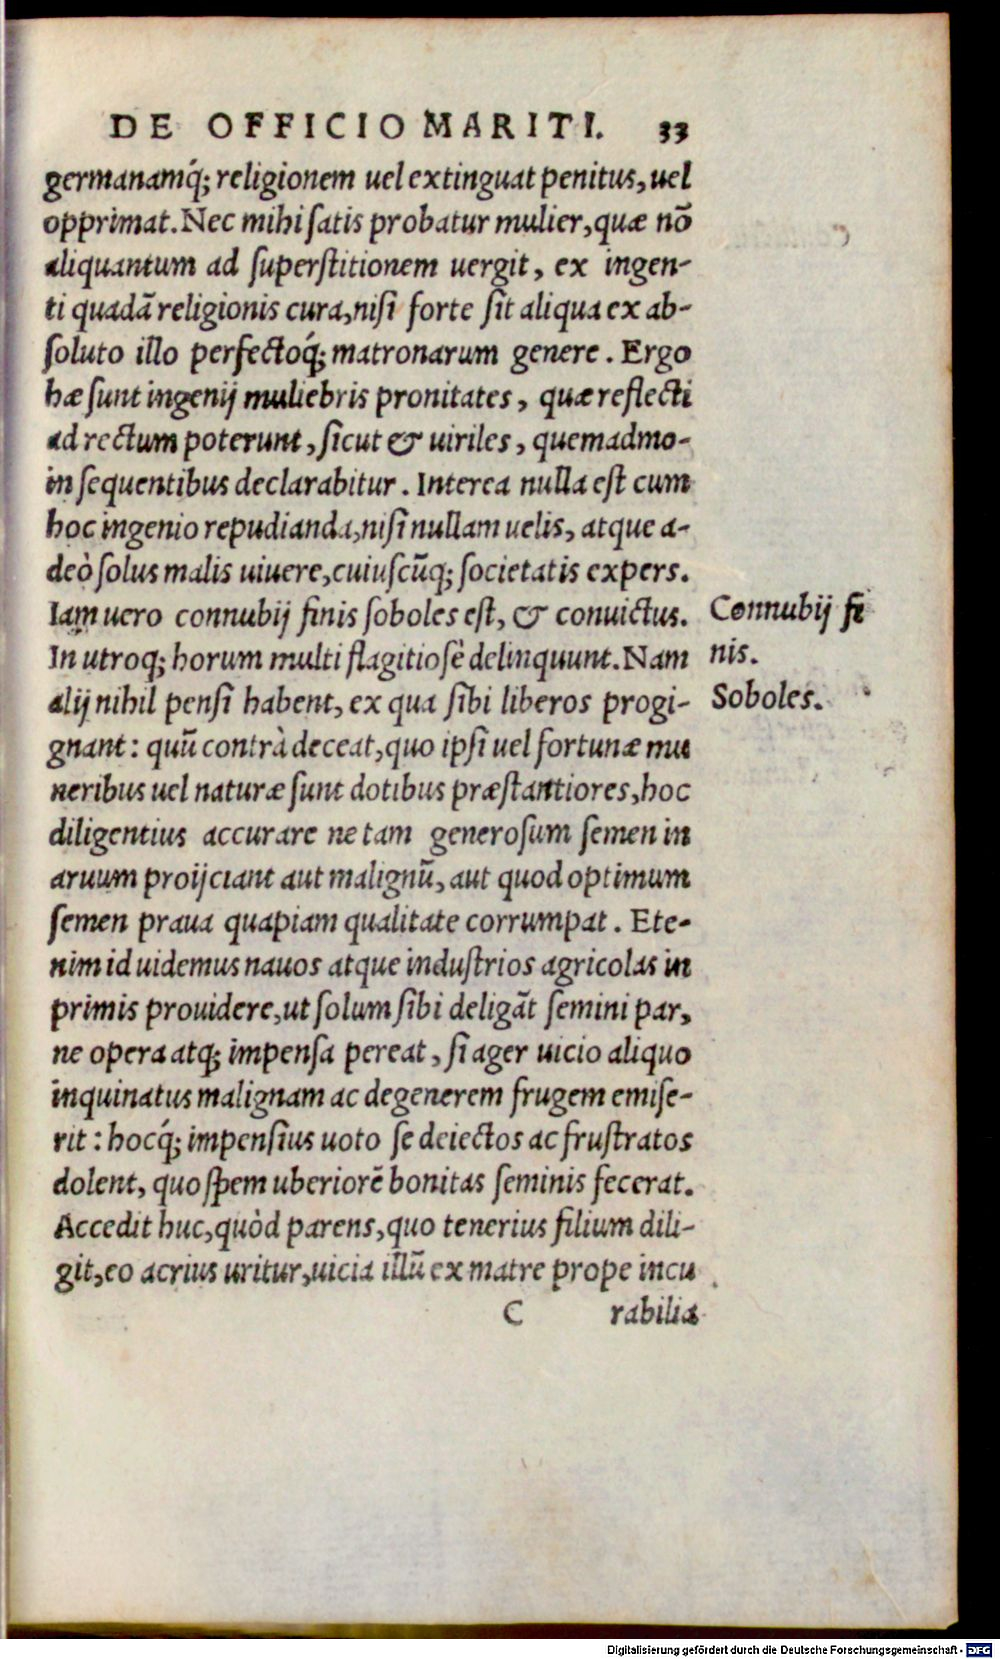 DE OFFICIO MARITI. 33
germanamq́; religionem uel extinguat penitus, uel
opprimat. Nec mihi ſatis probatur mulier, quæ nō
aliquantum ad ſuperſtitionem uergit, ex ingen-
ti quadā religionis cura, niſi forte ſit aliqua ex ab-
ſoluto illo perfectoq́; matronarum genere. Ergo
hæ ſunt ingenij muliebris pronitates, quæ reflecti
ad rectum poterunt, ſicut & uiriles, quemadmo-
in ſequentibus declarabitur. Interea nulla eſt cum
hoc ingenio repudianda, niſi nullam uelis, atque a-
deò ſolus malis uiuere, cuiuſcūq; ſocietatis expers.
Iam uero connubij finis ſoboles eſt, & conuictus.
Connubij fi
nis.
In utroq; horum multi flagitioſè delinquunt. Nam
alij nihil penſi habent, ex qua ſibi liberos progi-
Soboles.
gnant: quū contrà deceat, quo ipſi uel fortunæ mu
neribus uel naturæ ſunt dotibus præſtantiores, hoc
diligentius accurare ne tam generoſum ſemen in
aruum proijciant aut malignū, aut quod optimum
ſemen praua quapiam qualitate corrumpat. Ete-
nim id uidemus nauos atque induſtrios agricolas in
primis prouidere, ut ſolum ſibi deligāt ſemini par,
ne opera atq; impenſa pereat, ſi ager uicio aliquo
inquinatus malignam ac degenerem frugem emiſe-
rit: hocq́; impenſius uoto ſe deiectos ac fruſtratos
dolent, quo ſpem uberiorē bonitas ſeminis fecerat.
Accedit huc, quòd parens, quo tenerius filium dili-
git, eo acrius uritur, uicia illū ex matre prope incu
C rabilia
Digitalisierung gefördert durch die Deutsche Forschungsgemeinschaft - DFG